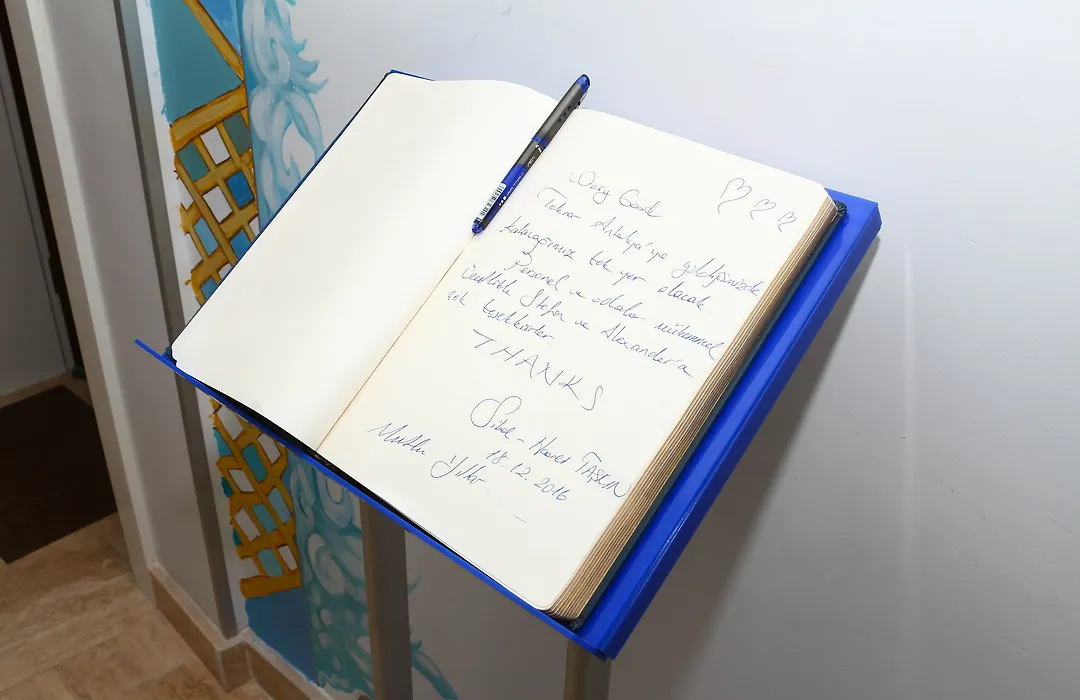 Very Good
Tekrar Antalya'ya geldiğimizde
kalacağımız tek yer olacak.
Personel ve odalar mükemmel
özellikle Stefan ve Alexander'a
çok teşekkürler.
THANKS
Sibel - TAŞKIN
18.12.2016
Mutlu Yıllar...